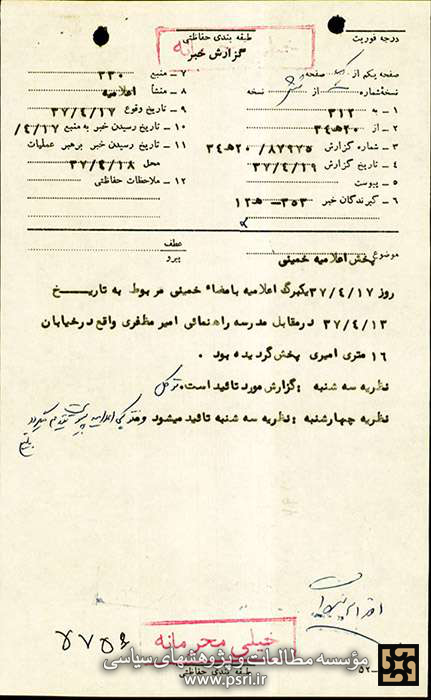 درجه فوریت
طبقه بندی حفاظتی
گزارش خبر
صفحه یکم از صفحه
نسخه شماره از نسخه
۱ - به ۳۱۲
۲ - از ۲۰ه۳۴
۳ - شماره گزارش ۸۷۹۷۵/ ۲۰ه۳۴
۴ - تاریخ گزارش ۳۷/۴/۱۹
۵ - پیوست
۶ - گیرندگان خبر
۷ - منبع ۲۳۰
۸ - منشأ اعلامیه
۹ - تاریخ وقوع ۳۷/۴/۱۷
۱۰ - تاریخ رسیدن خبر به منبع ۴/۱۷/
۱۱ - تاریخ رسیدن خبر برهبر عملیات
محل ۳۷/۴/۱۸
۱۲ - ملاحظات حفاظتی
موضوع پخش اعلامیه خمینی
عطف
پیرو
روز ۳۷/۴/۱۷ یکبرگ اعلامیه بامضاء خمینی مربوط به تاریخ
۳۷/۴/۱۳ درمقابل مدرسه راهنمائی امیر مظفری واقع درخیابان
۱۶ متری امیری پخش گردیده بود .
نظریه سه شنبه : گزارش مورد تائید است.
نظریه چهارشنبه : نظریه سه شنبه تائید میشود
خیلی محرمانه
طبقه بندی حفاظتی
مؤسسه مطالعات و پژوهشهای سیاسی
www.psri.ir